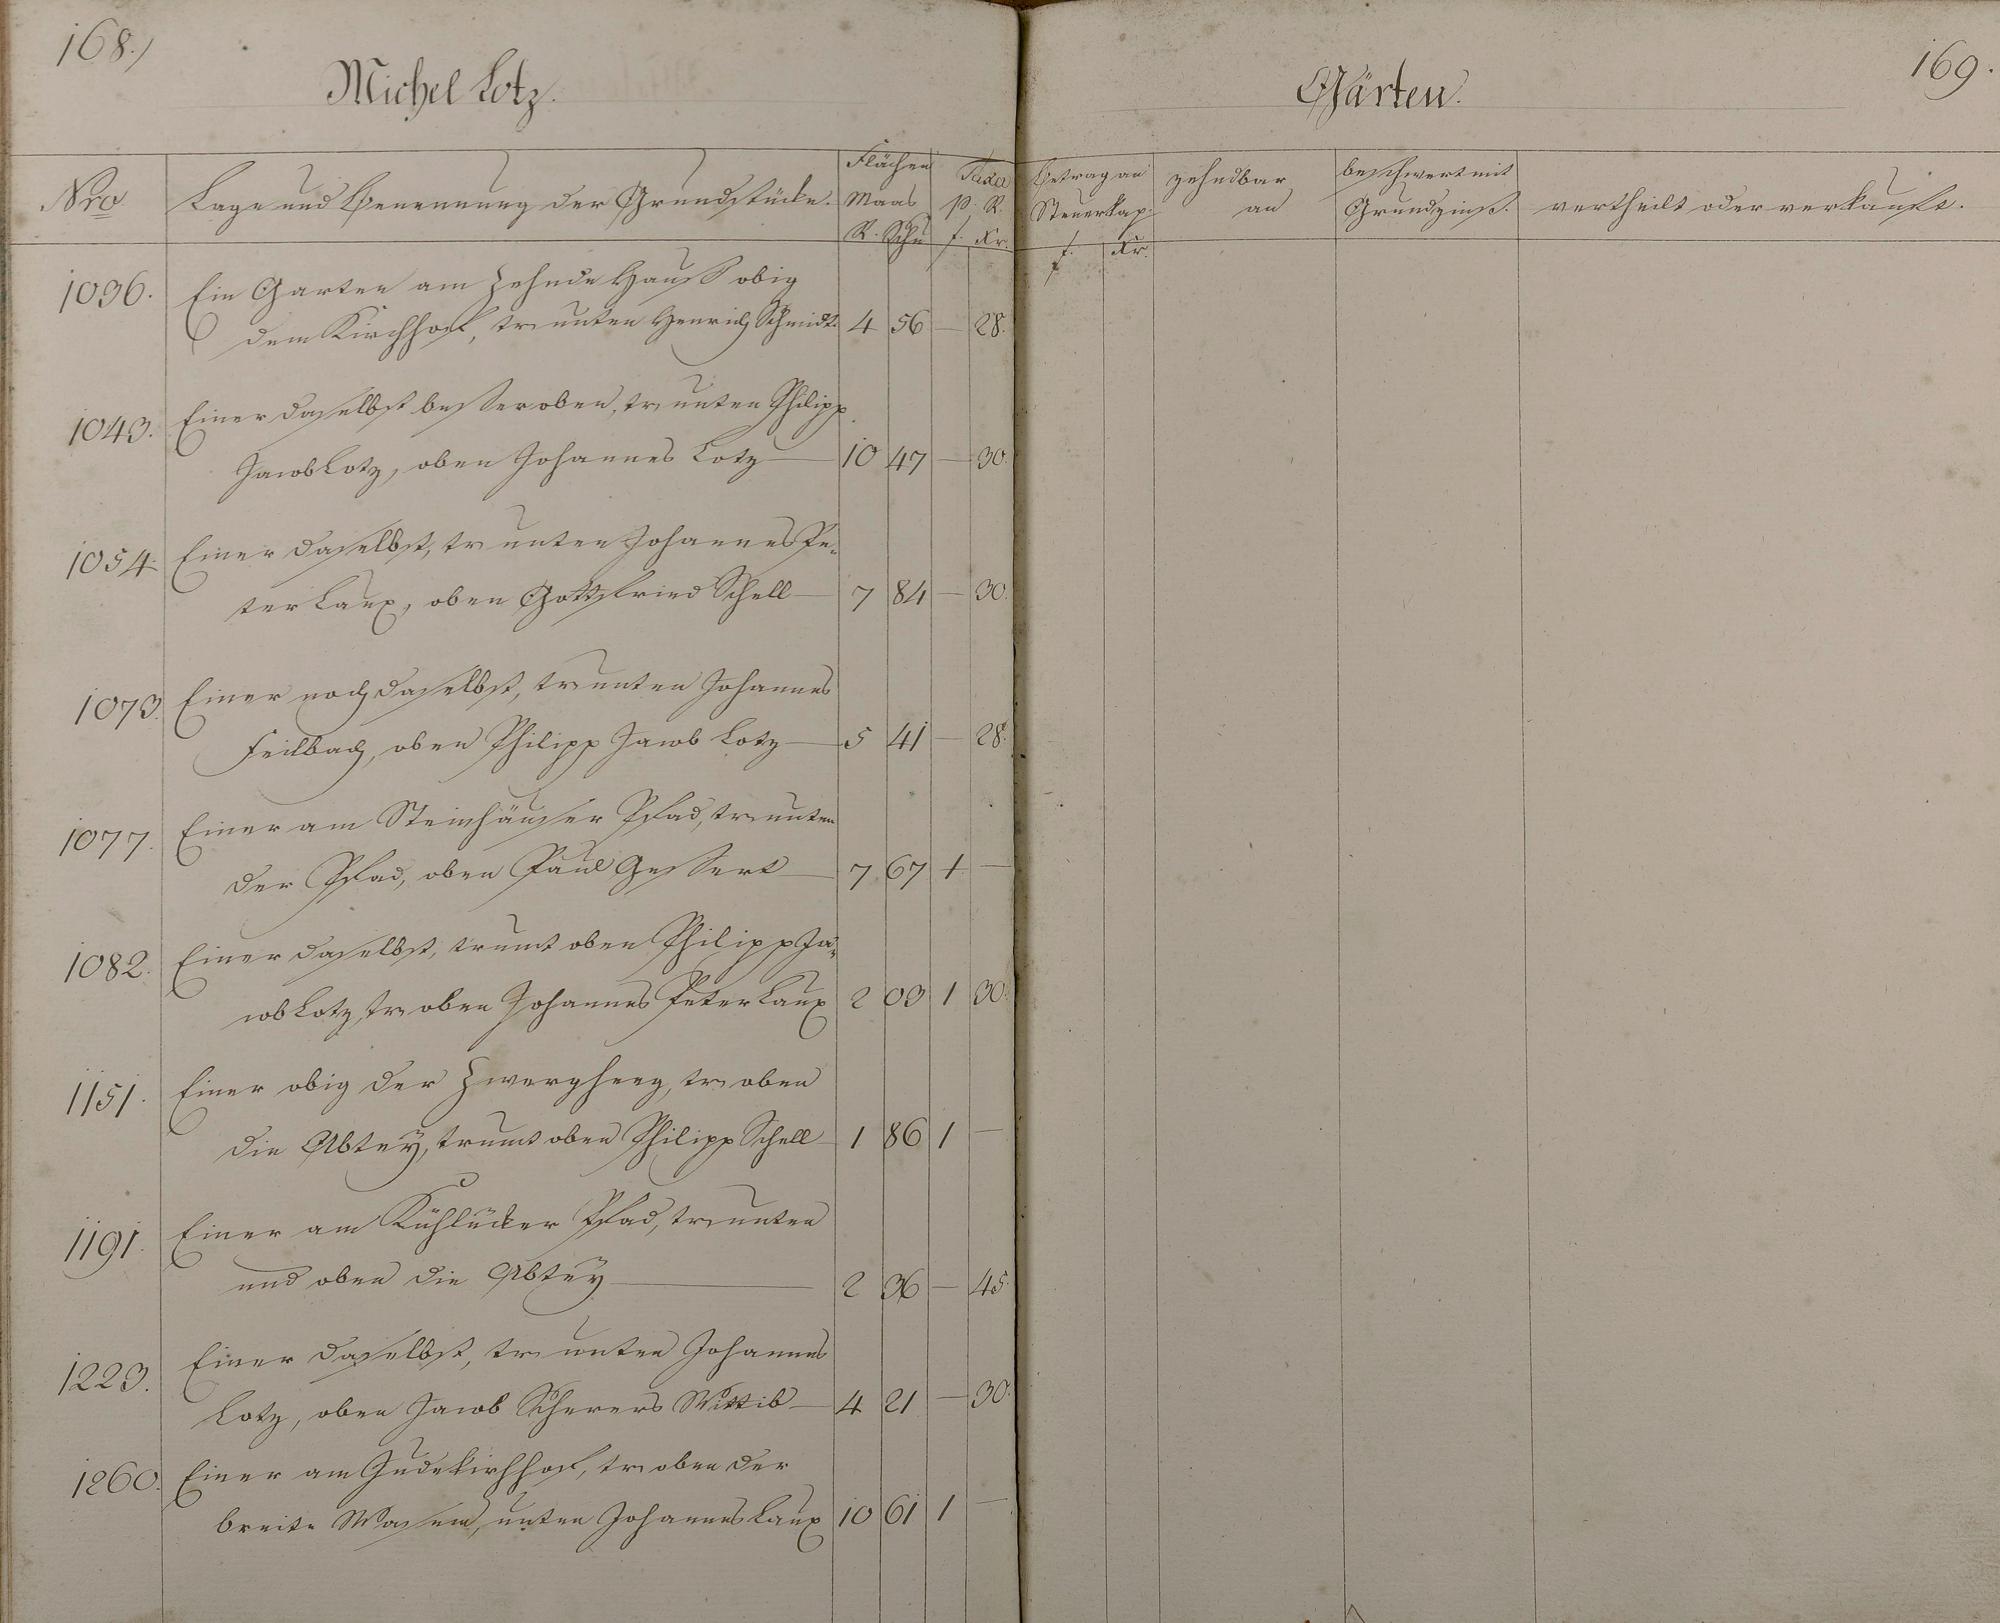 168.)
Michel Lotz.
Nro
Lage und Benennung der Grundstücke.
Flächen
Maas
R. Schu
Taxa
p. R.
f. Kr.
1036. Ein Garten am Zehnde Hauß obig
dem Kirchhof, tr unten Henrich Schmidt. 4 56 — 28.
1043. Einer daselbst besser oben, tr unten Philipp
Jacob Lotz, oben Johannes Lotz — 10 47 — 30.
1054. Einer daselbst, tr unten Johannes Pe-
ter Laux, oben Gottfried Schell — 7 84 — 30.
1073. Einer noch daselbst, tr unten Johannes
Feilbach, oben Philipp Jacob Lotz — 5 41 — 28.
1077. Einer am Steinhäuser Pfad, tr unten
der Pfad, oben Paul Gessert — 7 67 1 —
1082. Einer daselbst, trumt oben Philipp Ja-
cob Lotz, tr oben Johannes Peter Laux 2 03 1 30.
1151. Einer obig der Zwergheeg, tr oben
die Abtey, trumt oben Philipp Schell — 1 86 1 —
1191. Einer am Kühlücker Pfad, tr unten
und oben die Abtey — 2 36 — 45.
1223. Einer daselbst, tr unten Johannes
Lotz, oben Jacob Scherers Wittib — 4 21 — 30.
1260. Einer am Judekirchhof, tr oben der
breite Wasem, unten Johannes Laux 10 61 1 —
169.
Gärten.
Betrag an
Steuerkap.
f. Kr.
f
zehndbar
an
beschwert mit
Grundzinß.
vertheilt oder verkauft.